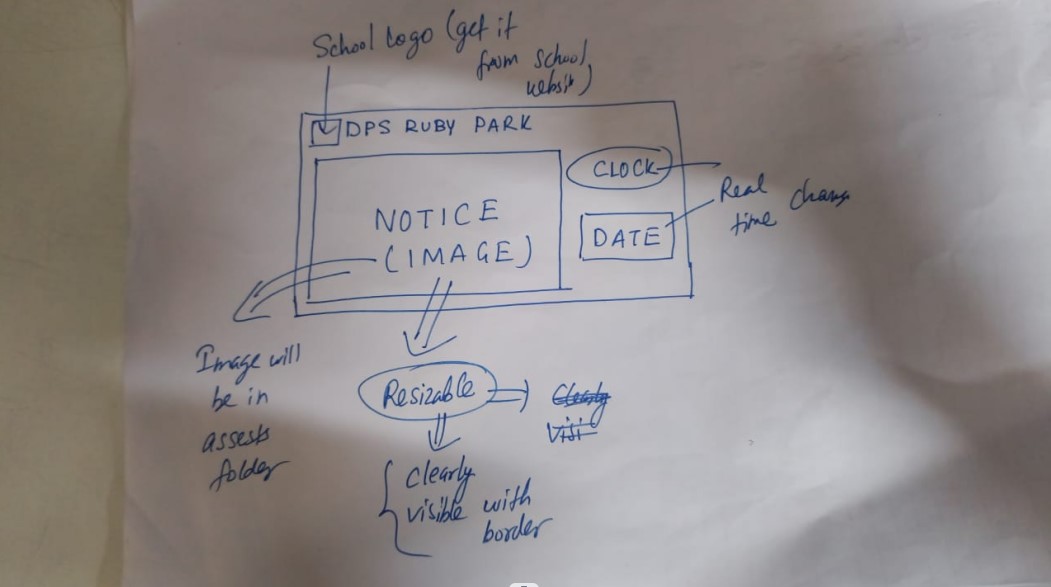 School Logo (get it
from school
websit)
DPS RUBY PARK
CLOCK
NOTICE
(IMAGE)
DATE
Real
time change
Image will
be in
assests
folder
Resizable
Clearly
Visi
Clearly
visible with
border